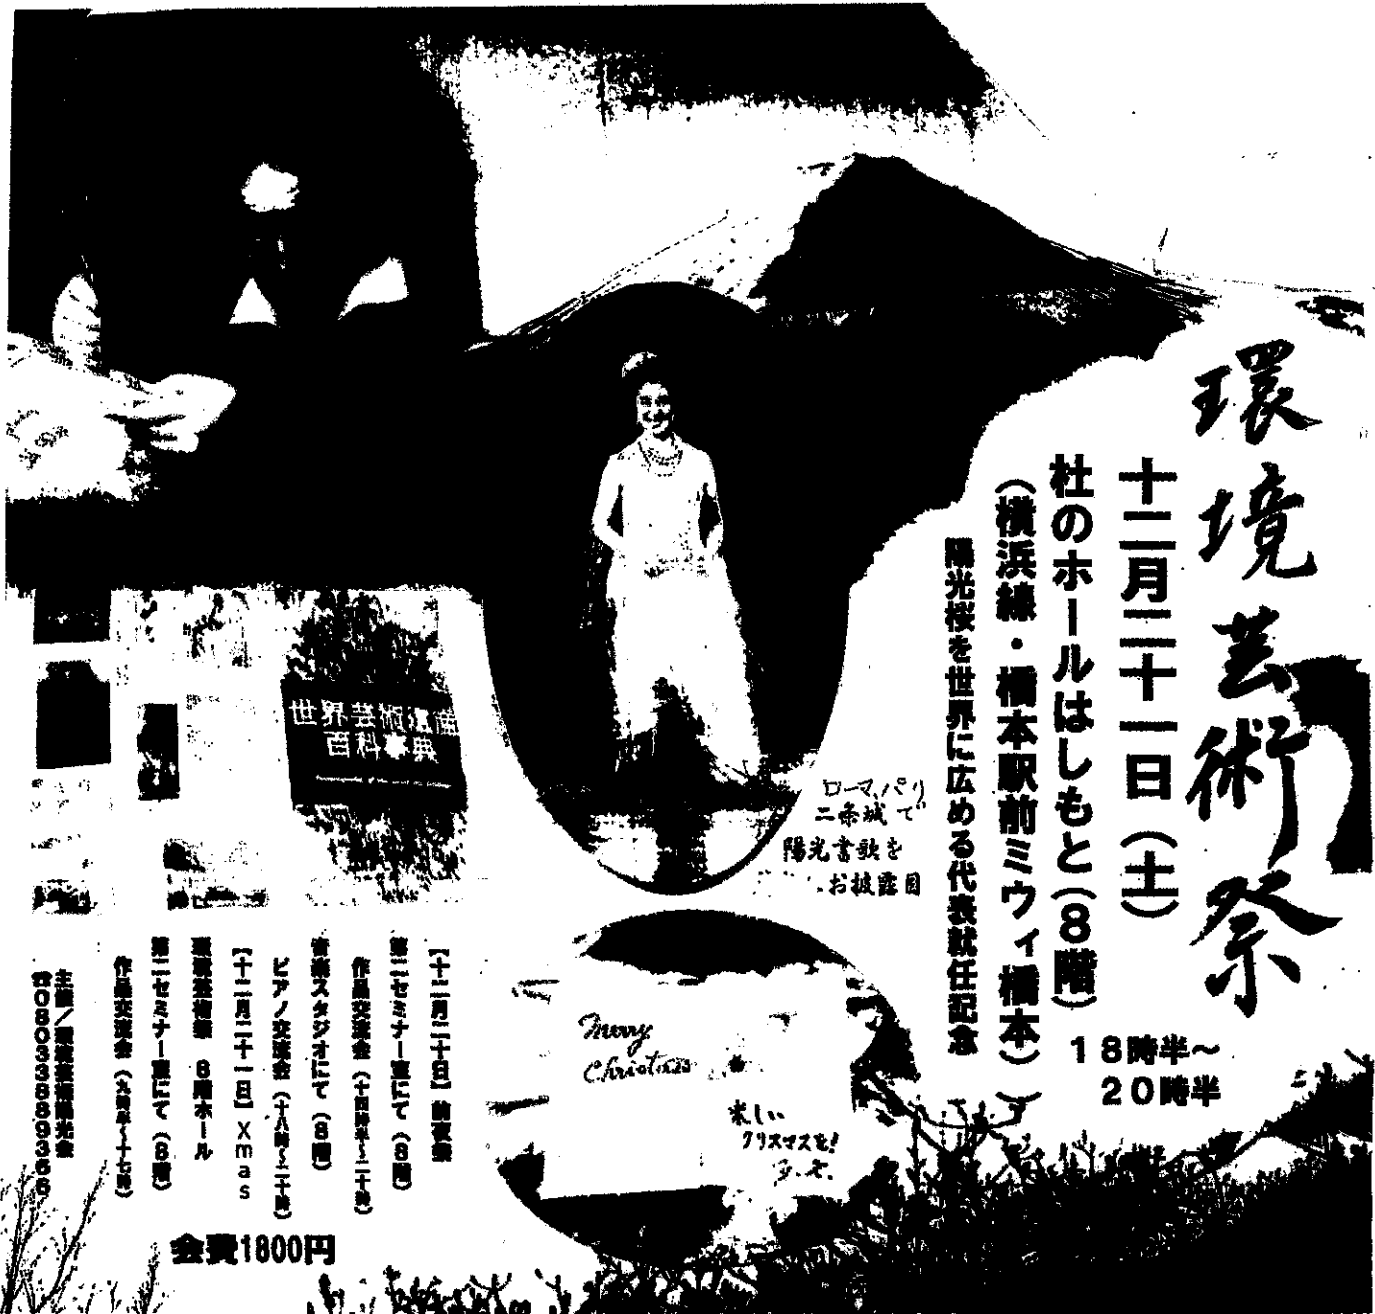 環境芸術祭
十二月二十一日（土）
18時半～
20時半
杜のホールはしもと（8階）
（横浜線・橋本駅前ミウィ橋本）
陽光桜を世界に広める代表就任記念
ローマ、パリ
二条城で
陽光書歌を
お披露目
世界芸術遺産
百科事典
Merry
Christmas
楽しい
クリスマスを！
【十二月二十日】前夜祭
第二セミナー室にて（8階）
作品交流会（十四時半～二十時）
音楽スタジオにて（8階）
ピアノ交流会（十八時～二十時）
【十二月二十一日】Xmas
環境芸術祭 8階ホール
第二セミナー室にて（8階）
作品交流会（九時半～十七時）
主催／環境芸術陽光会
会費1800円